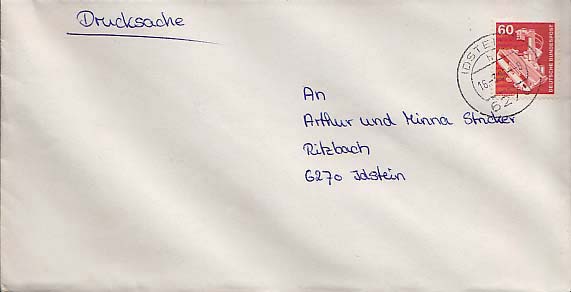 Drucksache
60
DEUTSCHE BUNDESPOST
An
Arthur und Minna Stricker
Ritzbach
6270 Idstein